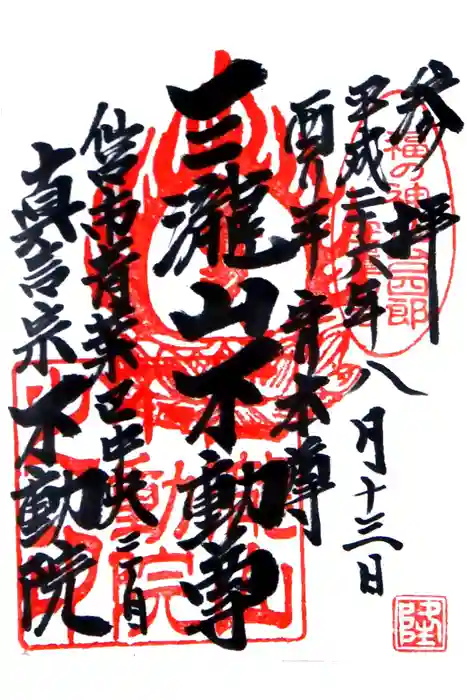 参拝
平成二十六年八月十三日
酉り年 守本尊
三瀧山不動尊
仙台市青葉区中央二丁目
真言宗 不動院
福の神